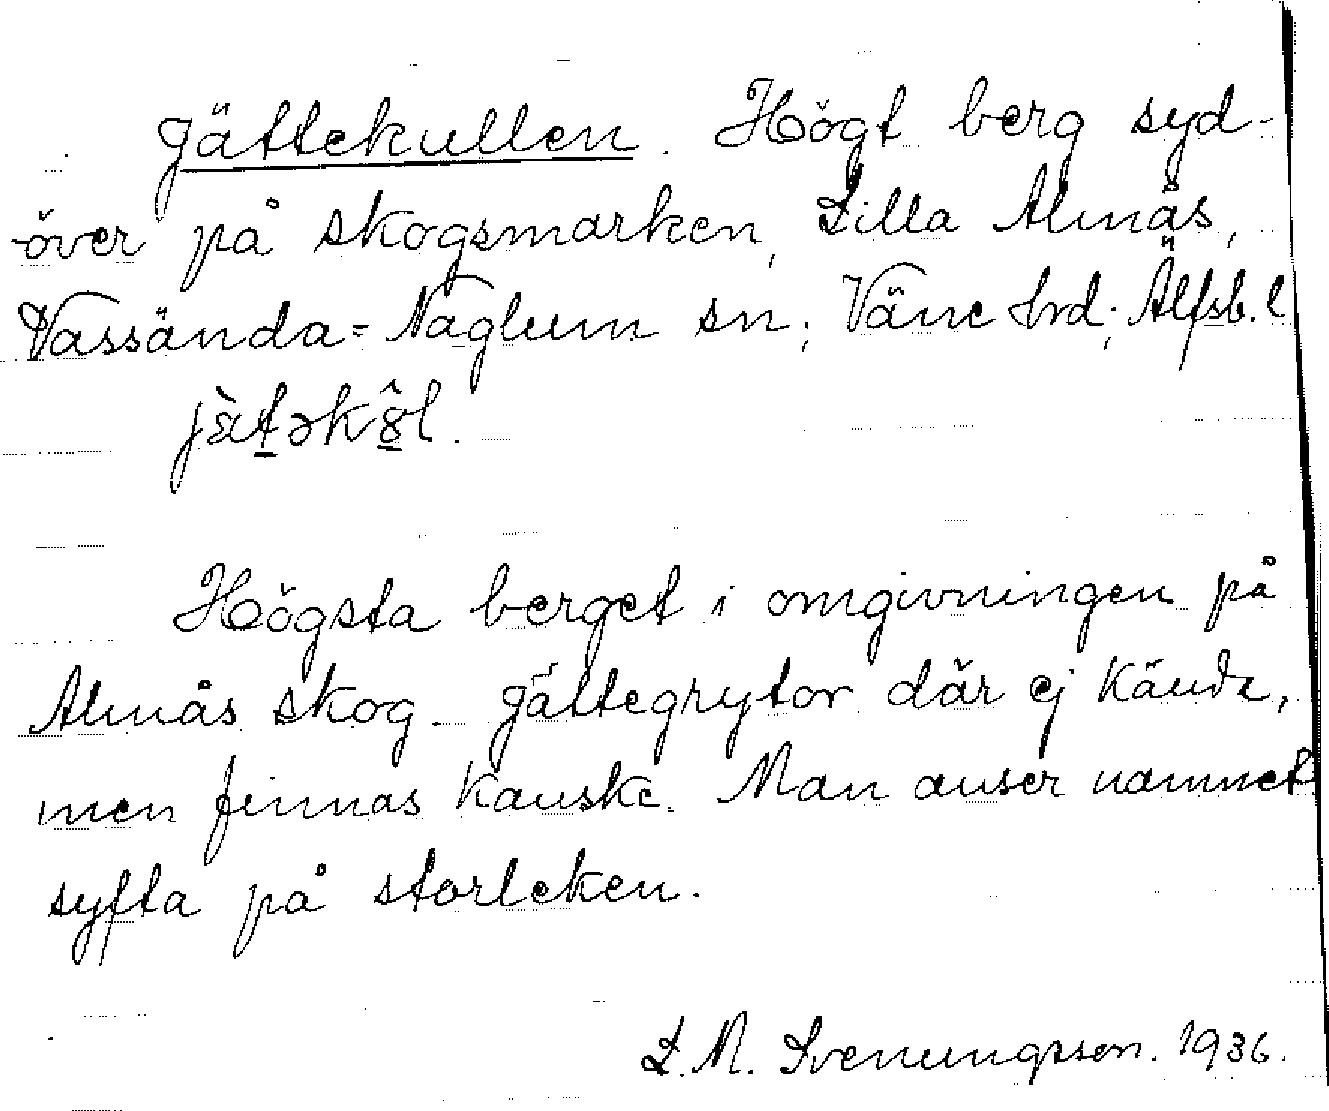 Jättekullen. Högt berg syd-
över på skogsmarken, Lilla Almås,
Vassända=Naglum sn; Väne hrd; Älfsb. l
jὰt̲əkȣ̲̂l.
Högsta berget i omgivningen på
Almås skog. Jättegrytor där ej kända,
men finnas kanske. Man anser namnet
syfta på storleken.
L. M. Svenungsson. 1936.